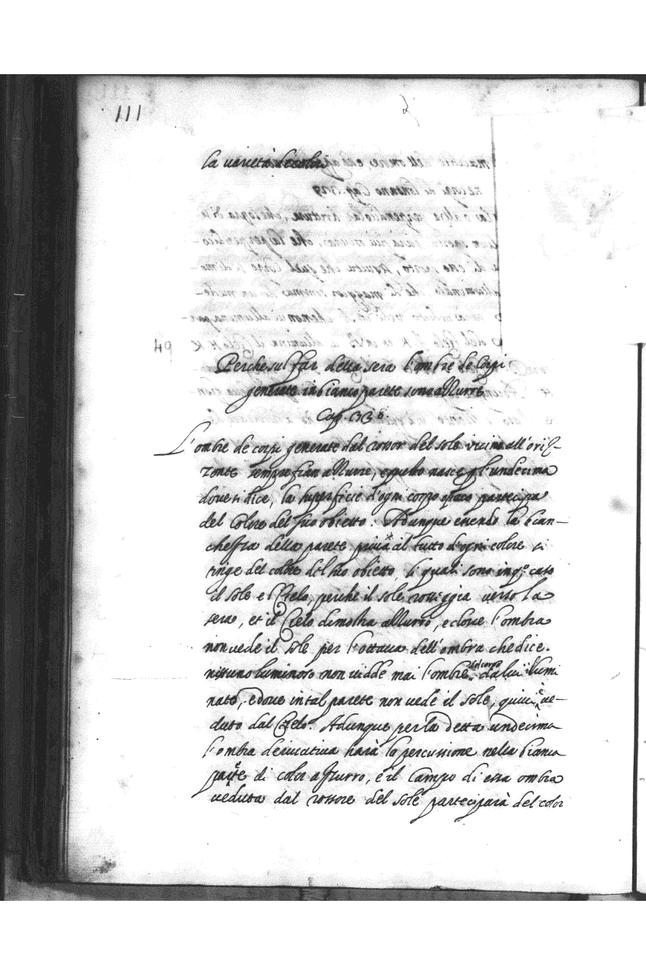 111
la varietà de colori
49
Perche sul far della sera l'ombre de Corpi
generate in bianco parete sono azzurre
Cap. 
L'ombre de corpi generate dal rossor del sole vicino all'oriz-
zonte sempre fian azzurre, e questo nasce p l'undecima
dove si dice, la superficie d'ogni corpo opaco partecipa
del colore del suo obietto. Adunque essendo la bian-
chezza della parete priva al tutto d'ogni colore si
tinge del colore del suo obietto, li quali sono in qº caso
il sole e Cielo, perche il sole rosseggia verso la
sera, et il Cielo dimostra azzurro, e dove l'ombra
non vede il sole per l'ottava dell'ombra che dice.
nissuno luminoso non vidde mai l'ombre del corpo da lui illumi
nato, e dove in tal parete non vede il sole, quivi è ve-
duto dal Cielo. Adunque per la detta undecima
l'ombra derivativa harà la percussione nella bianca
parete di color azzurro, e il campo di essa ombra
veduta dal rossore del sole participarà del color